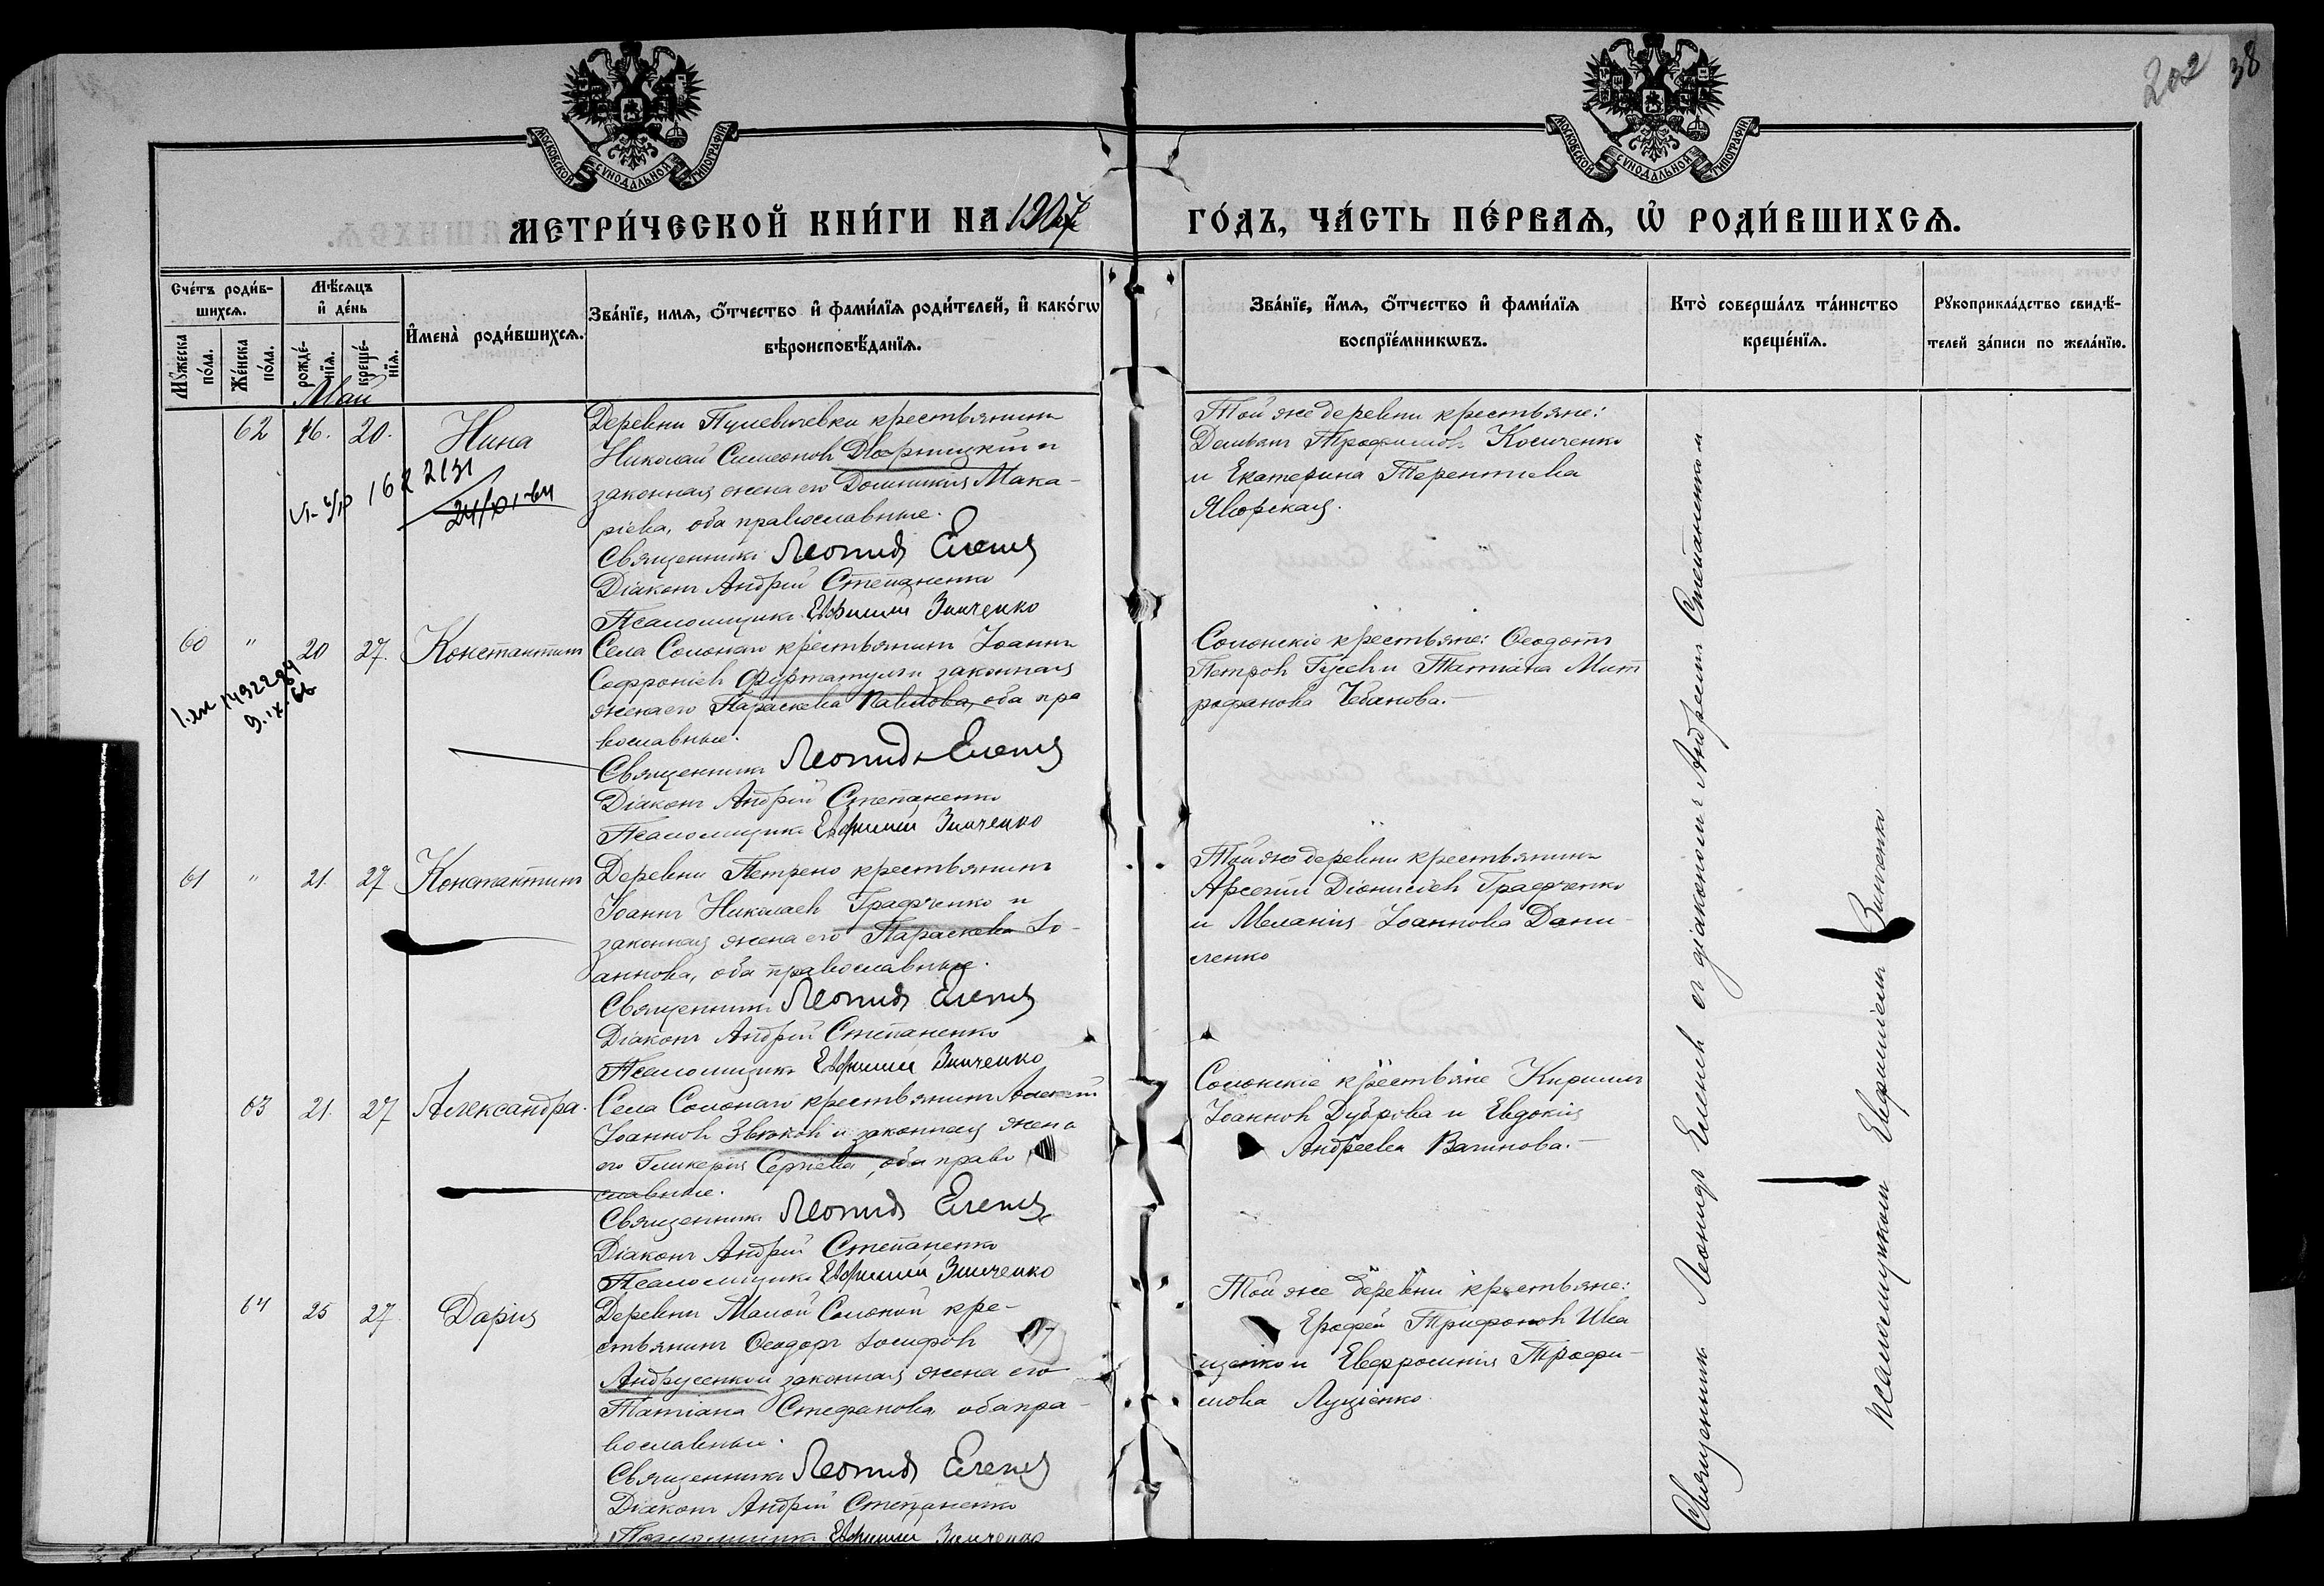 202
38
МОСКОВСКОЙ СѴНОДАЛЬНОЙ ТИПОГРАФІИ
МОСКОВСКОЙ СѴНОДАЛЬНОЙ ТИПОГРАФІИ
МЕТРИ́ЧЕСКОЙ КНИ́ГИ НА 1907
ГО́ДЪ, ЧА́СТЬ ПЕ́РВАѦ, Ѡ҆ РОДИ́ВШИХСѦ.
Счéтъ роди́в-
шихсѧ.
Мꙋ́жеска
по́ла.
Же́нска
по́ла.
Мѣ́сѧцъ
и҆ де́нь
рожде́-
нїѧ.
креще́-
нїѧ.
И҆мена̀ роди́вшихсѧ.
Зва́нїе, имѧ, Ѻ҆́тчество и҆ фами́лїѧ роди́телей, и҆ како́гѡ
вѣроисповѣ́данїѧ.
Зва́нїе, и҆́мѧ, Ѻ҆́тчество и҆ фами́лїѧ
воспрїе́мникѡвъ.
Кто̀ соверша́лъ та́инство
креще́нїѧ.
Рꙋкоприкла́дство свидѣ́-
телей за́писи по жела́нїю.
Май
62 16. 20. Нина
Деревни Пулевичевки крестьянинъ
Николай Симеоновъ Дворницкій и
законная жена его Домникія Мака-
ріева, оба православные.
Священникъ Леонидъ Еленев
Діаконъ Андрей Степаненко
Псаломщикъ Евфимий Зинченко
Той же деревни крестьяне:
Трофимовъ Косиченко
и Екатерина Терентиева
Яворская.
162 2131
60 " 20 27. Константинъ
Села Солонаго крестьянинъ Іоаннъ
Софроніевъ и законная
жена его Параскева Павлова, оба пра
вославные.
Священникъ Леонидъ Еленев
Діаконъ Андрей Степаненко
Псаломщикъ Евфимий Зинченко
Солонскіе крестьяне: Ѳеодотъ
Петровъ Гусевъ и Татіана Мит
рофанова Чебанова.
9.IX.66
61 " 21. 27 Константинъ
Деревни Петрено крестьянинъ
Іоаннъ Николаевъ Графченко и
законная жена его Параскева Іо-
аннова, оба православные.
Священникъ Леонидъ Еленев
Діаконъ Андрей Степаненко
Псаломщикъ Евфимий Зинченко
Той же деревни крестьянинъ
Арсений Діонисіевъ Графченко
и Меланія Іоаннова Дани-
ленко
63 21. 27 Александра.
Села Солонаго крестьянинъ Алексий
Іоанновъ Звѣковъ и законная жена
его Гликерія Сергіева, оба право
славные.
Священникъ Леонидъ Еленев
Діаконъ Андрей Степаненко
Псаломщикъ Евфимий Зинченко
Солонскіе крестьяне Кириллъ
Іоанновъ Дуброва и Евдокія
Андреева Вагинова.
64 25 27. Дарія
Деревни Малой Солоной кре-
стьянинъ Ѳеодоръ Іосифовъ
Андрусенко и законная жена его
Татіана Стефанова, оба пра-
вославные.
Священникъ Леонидъ Еленев
Діаконъ Андрей Степаненко
Псаломщикъ Евфимий Зинченко
Той же деревни крестьяне:
Ерофей Трифоновъ Ива
щенко и Евфросинія Трофи-
мова Луценко
Священникъ Леонидъ Еленевъ съ діакономъ Андреемъ Степаненкомъ
псаломщикомъ Евфиміемъ Зинченко